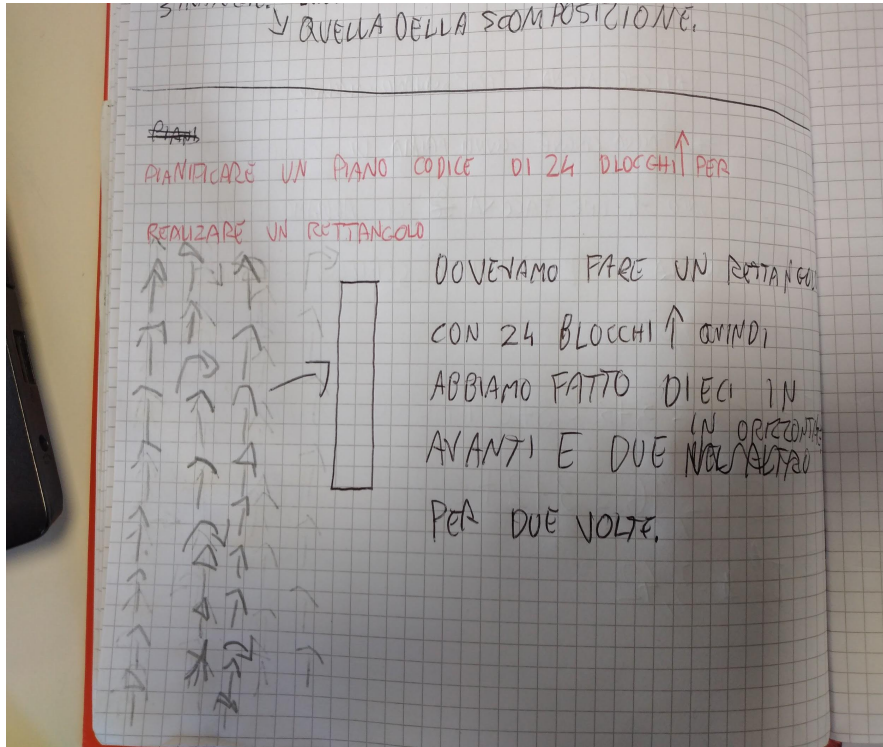 QUELLA DELLA SCOMPOSIZIONE.
PIANIFICARE UN PIANO CODICE DI 24 BLOCCHI ↑ PER
REALIZARE UN RETTANGOLO
DOVEVAMO FARE UN RETTANGOL
CON 24 BLOCCHI ↑ QUINDI
ABBIAMO FATTO DIECI IN
AVANTI E DUE IN ORIZZONTALE
PER DUE VOLTE.